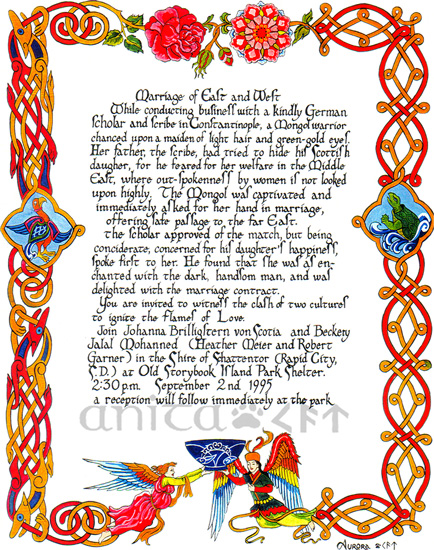 Marriage of East and West
While conducting business with a kindly German
scholar and scribe in Constantinople, a Mongol warrior
chanced upon a maiden of light hair and green-gold eyes.
Her father, the scribe, had tried to hide his Scottish
daughter, for he feared for her welfare in the Middle
East, where out-spokenness by women is not looked
upon highly. The Mongol was captivated and
immediately asked for her hand in marriage,
offering safe passage to the far East.
The scholar approved of the match, but being
conciderate, concerned for his daughter's happiness,
spoke first to her. He found that she was as en-
chanted with the dark, handsom man, and was
delighted with the marriage contract.
You are invited to witness the clash of two cultures
to ignite the flames of Love.
Join Johanna Brilligstern von Scotia and Beckety
Jalal Mohanned (Heather Meier and Robert
Garner) in the Shire of Shattentor (Rapid City,
S.D.) at Old Storybook Island Park Shelter.
2:30 p.m. September 2nd 1995
a reception will follow immediately at the park
anita
Aurora